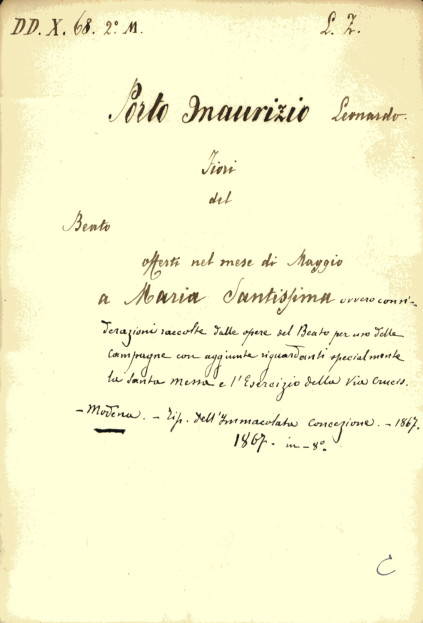 DD. X. 68. 2º M. L. Z.
Porto Maurizio Leonardo.
Fiori
del
Beato
offerti nel mese di Maggio
a Maria Santissima ovvero consi-
derazioni raccolte dalle opere del Beato per uso delle
Campagne con aggiunte riguardanti specialmente
la Santa Messa e l'Esercizio della Via Crucis.
- Modena. - Tip. dell'Immacolata Concezione. - 1867.
1867. in-8º.
C